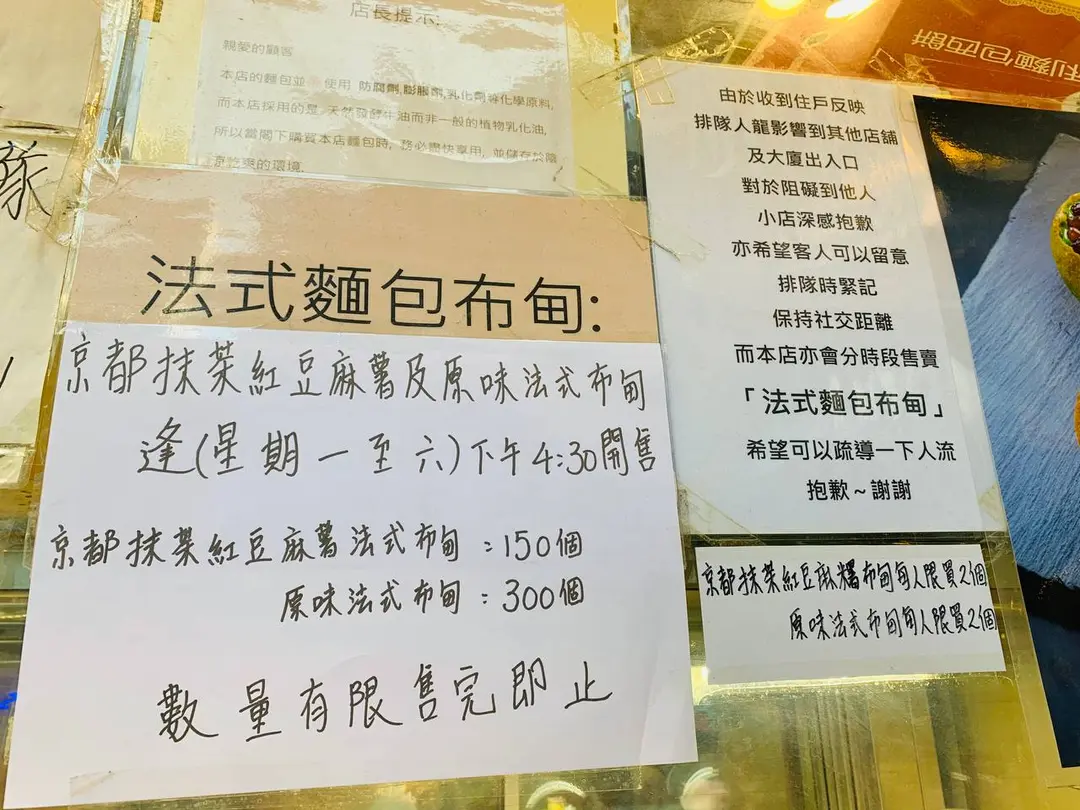 店長提示:
親愛的顧客
本店的麵包並 使用 防腐劑,膨脹劑,乳化劑等化學原料,
而本店採用的是 天然發酵牛油而非一般的植物乳化油,
所以當閣下購買本店麵包時, 務必盡快享用, 並儲存於陰
涼乾爽的環境.
隊
法式麵包布甸:
京都抹茶紅豆麻薯及原味法式布甸
逢(星期一至六)下午4:30開售
京都抹茶紅豆麻薯法式布甸:150個
原味法式布甸:300個
數量有限售完即止
利麵包西餅
由於收到住戶反映
排隊人龍影響到其他店舖
及大廈出入口
對於阻礙到他人
小店深感抱歉
亦希望客人可以留意
排隊時緊記
保持社交距離
而本店亦會分時段售賣
「法式麵包布甸」
希望可以疏導一下人流
抱歉~謝謝
京都抹茶紅豆麻糬布甸每人限買2個
原味法式布甸每人限買2個